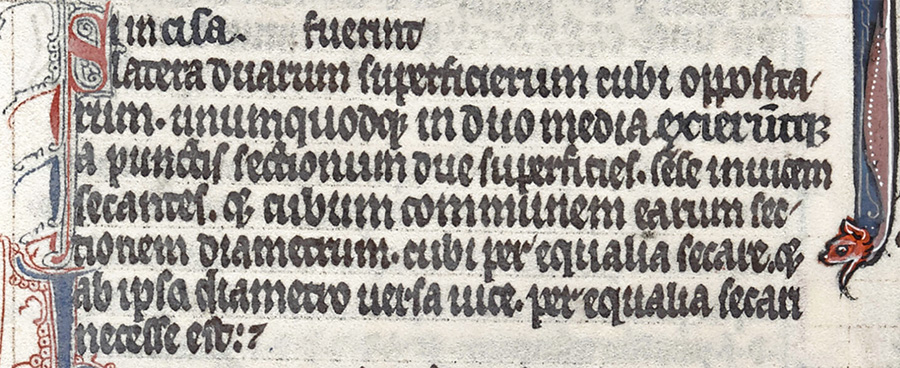 Si incisa. fuerint
latera duarum superficierum cubi opposita/
rum. unumquodqꝫ in duo media exierūtqꝫ
a punctis sectionum due superficies. sese inuicem
secantes. qꝫ cubum communem earum sec/
tionem diametrum. cubi per equalia secare. qꝫ
ab ipsa diametro uersa uice. per equalia secari
necesse est:7